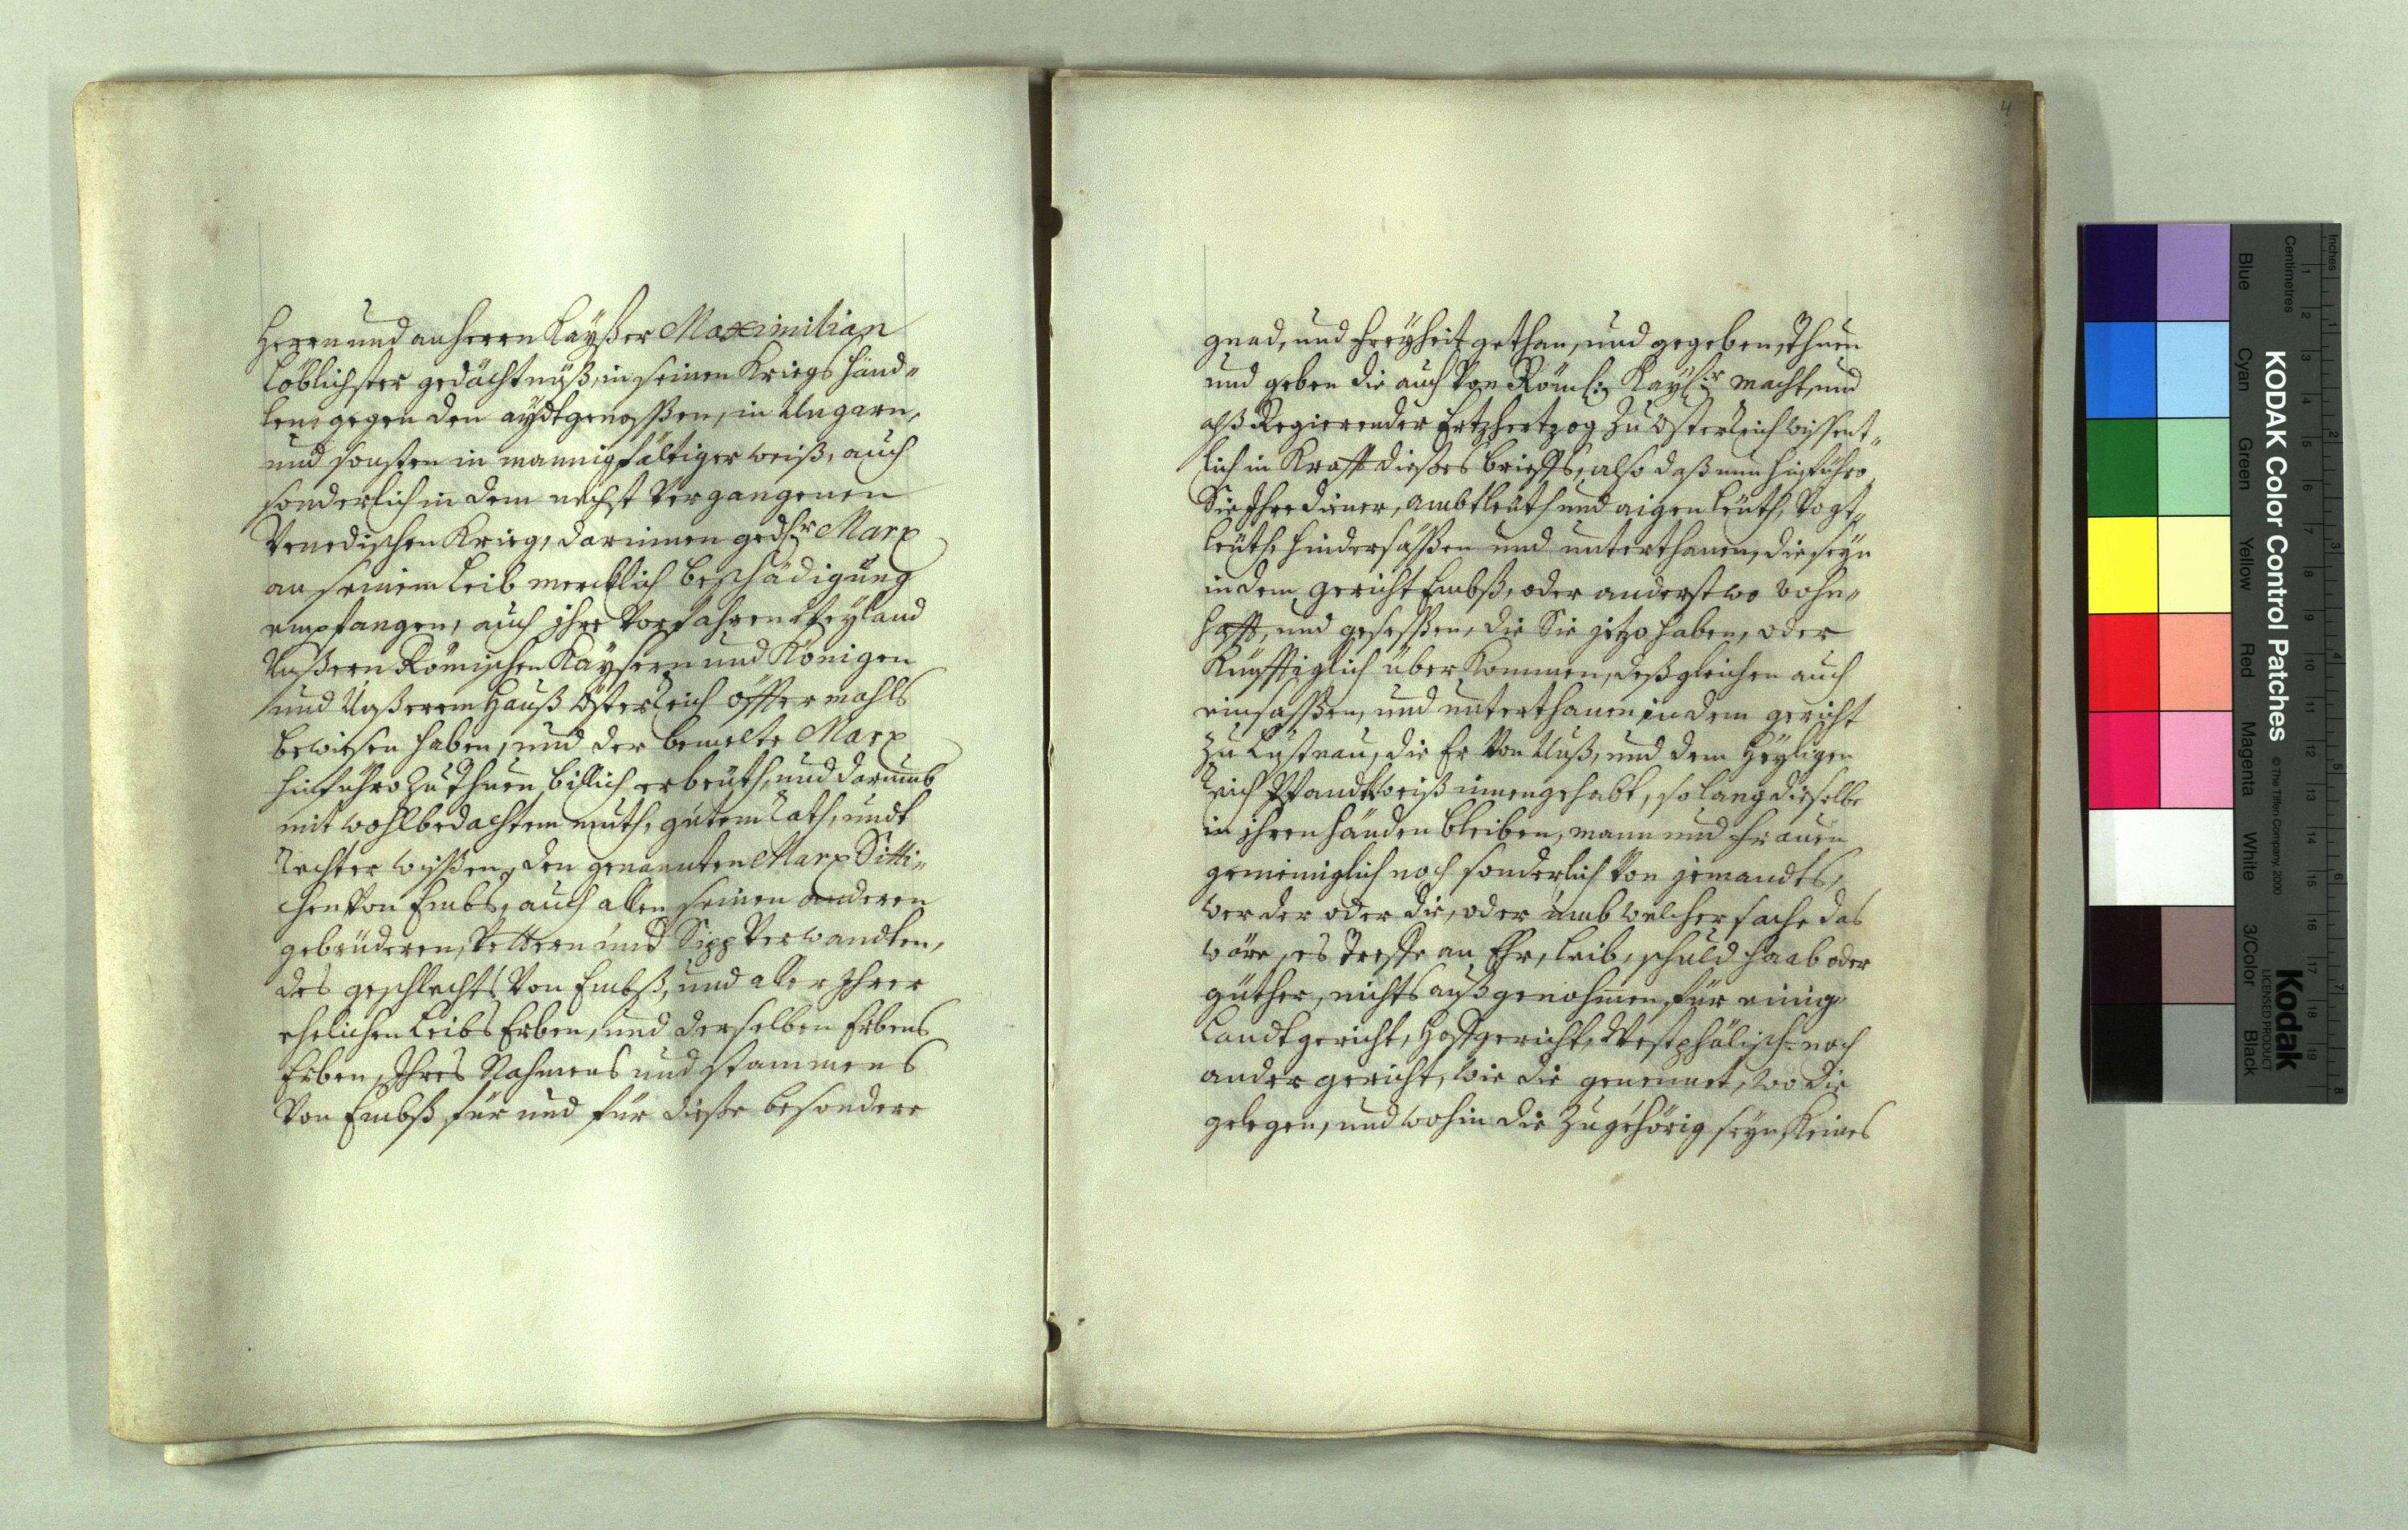 Herrn und anherrn Kayßer Maximilian
Löblichster gedächtnüß, in seinen Kriegs händ„
len gegen den aydtgenoßen, in Ungarn,
und sonsten in mannigfältiger weiß, auch
sonderlich in dem nechst Vergangenen
Venedischen Krieg, darinnen gedhr Marx
an seinem Leib mercklich beschädigung
empfangen, auch ihre Vorfahren Weyland
Unßern Römischen Kaysern und Königen
und Unßerem Hauß Österreich öffter mahls
bewisen haben, und der bemelte Marx
hinführo zu Thuen billich erbeuth, und darumb
mit wohlbedachtem muth, gutem Rath, undt
Rechter wissen, den genannten Marx Sitti„
chen Von Embs, auch allen seinen anderen
gebrüderen, Vettern und Sipp Verwandten,
des geschlechts Von Embß, und aller Ihrer
ehelichen Leibs Erben, und derselben Erbens
Erben, Ihres Nahmens und stammens
Von Embß für und für diese besondere
4
gnad, und freyheit gethan, und gegeben, Thuen
und geben die auch Von Röml: Kayßr macht, und
alß Regierender Ertzhertzog zu Österreich wissent„
lich in Krafft dießes brieffs, also daß nun hinführo
Sie Ihre diener, ambtleuth und aigen leuth, Vogt„
leuthe hindersäßen und unterthanen, die seyn
in dem gericht Embß, oder anderstwo wohn„
hafft, und gesessen, die Sie jetzo haben, oder
Künfftiglich überkommen, deßgleichen auch
einsassen, und unterthanen in dem gericht
zu Lustnau, die Er Von Unß, und dem Heyligen
Reich Pfandtweiß innengehabt, so lang dieselbe
in ihren händen bleiben, mann und frauen
gemeiniglich noch sonderlich Von jemandts,
wer der oder die, oder umb welcher sache das
wäre, es treffe an Ehr, leib, schuld haab oder
güther, nichts außgenohmen, für einig
Landtgericht, Hoffgericht, Westphälisch- noch
ander gericht, wie die genennet, wo die
gelegen, und wohin die zugehörig seyn, Keines
Inches
Centimetres
KODAK Color Control Patches
© The Tiffen Company, 2000
Kodak
LICENSED PRODUCT
Blue
Cyan
Green
Yellow
Red
Magenta
White
3/Color
Black